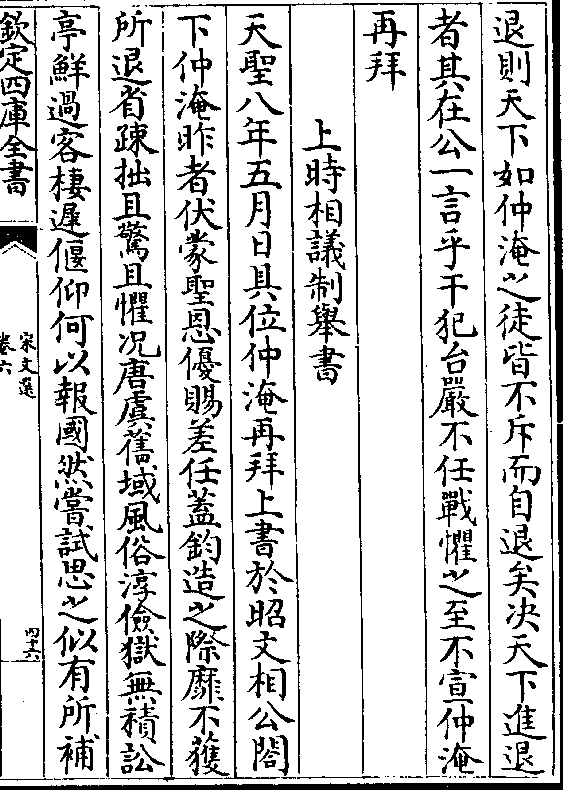 退則天下如仲淹之徒皆不斥而自退矣决天下進退
者其在公一言乎干犯台嚴不任戰懼之至不宣仲淹
再拜
上時相議制舉書
天聖八年五月日具位仲淹再拜上書於昭文相公閤
下仲淹昨者伏蒙聖恩優賜差任蓋鈞造之際靡不獲
所退省疎拙且驚且懼况唐虞舊域風俗淳儉獄無積訟
亭鮮過客棲遲偃仰何以報國然嘗試思之似有所補
欽定四庫全書
宋文選
卷六
四十六